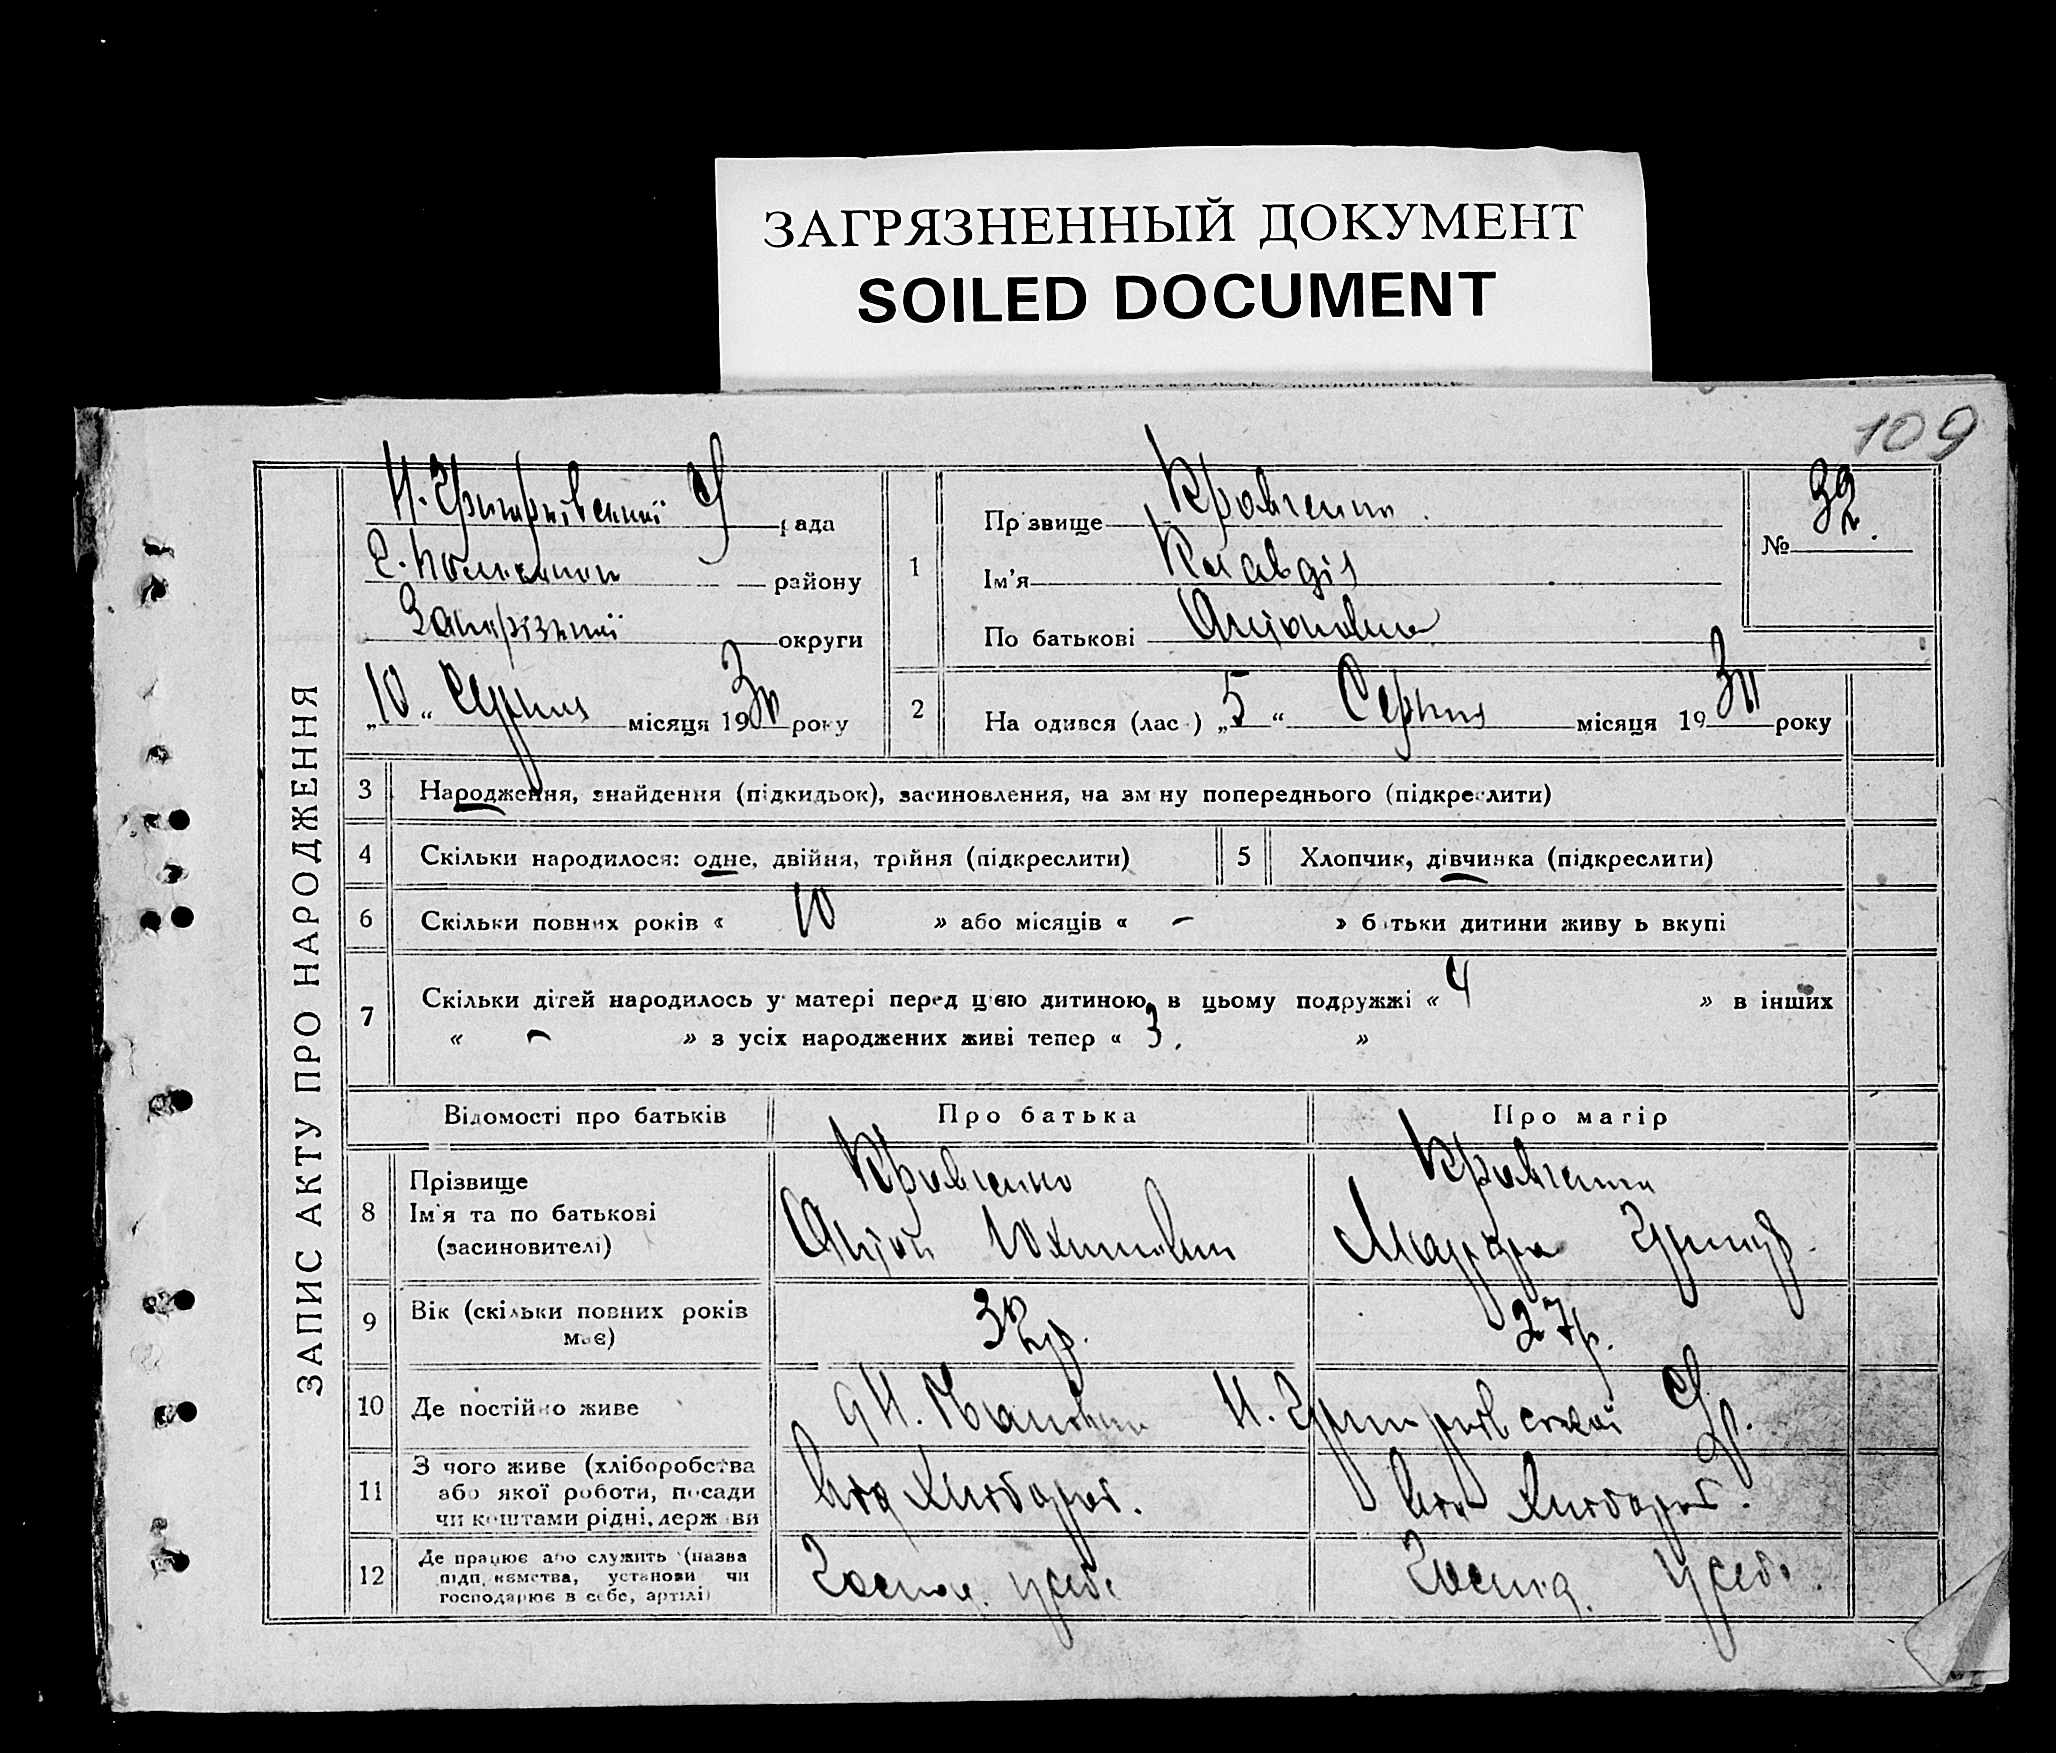 ЗАГРЯЗНЕННЫЙ ДОКУМЕНТ
SOILED DOCUMENT
109
ЗАПИС АКТУ ПРО НАРОДЖЕННЯ
рада
району
Запорізької округи
„10“ Серпня місяця 1930 року
1
Прізвище Кравченко
Ім'я Клавдія
По батькові Антоновна
№ 32.
2
На одився (лас ) „5“ Серпня місяця 1930 року
3 Народження, знайдення (підкидьок), засиновлення, на зм ну попереднього (підкреслити)
4 Скільки народилося: одне, двійня, трійня (підкреслити)
5 Хлопчик, дівчинка (підкреслити)
6 Скільки повних років « 10 » або місяців « - » батьки дитини живу ь вкупі
7 Скільки дітей народилось у матері перед цією дитиною в цьому подружжі « 4 » в інших
« - » з усіх народжених живі тепер « 3. »
Відомості про батьків Про батька Про матір
8
Прізвище
Ім'я та по батькові
(засиновителі)
Кравченко
Антон Юхимович
Кравченко
9
Вік (скільки повних років
має)
32 р.
27 р.
10 Де постійно живе
11
З чого живе (хліборобства
або якої роботи, посади
чи коштами рідні, держ ви
від Хлібороб.
від Хлібороб.
12
Де працює або служить (назва
підп ємства, установи чи
господарює в себе, артілі)
Господ. у себе
Господ. у себе.